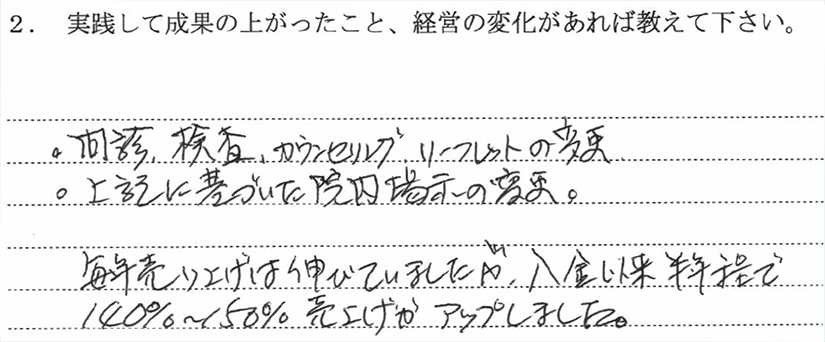 2. 実践して成果の上がったこと、経営の変化があれば教えて下さい。
。問診、検査、カウンセリング、リーフレットの変更
。上記に基づいた院内掲示の変更。
毎年売り上げは伸びていましたが、入会以来半年程で
140%～150% 売上げがアップしました。